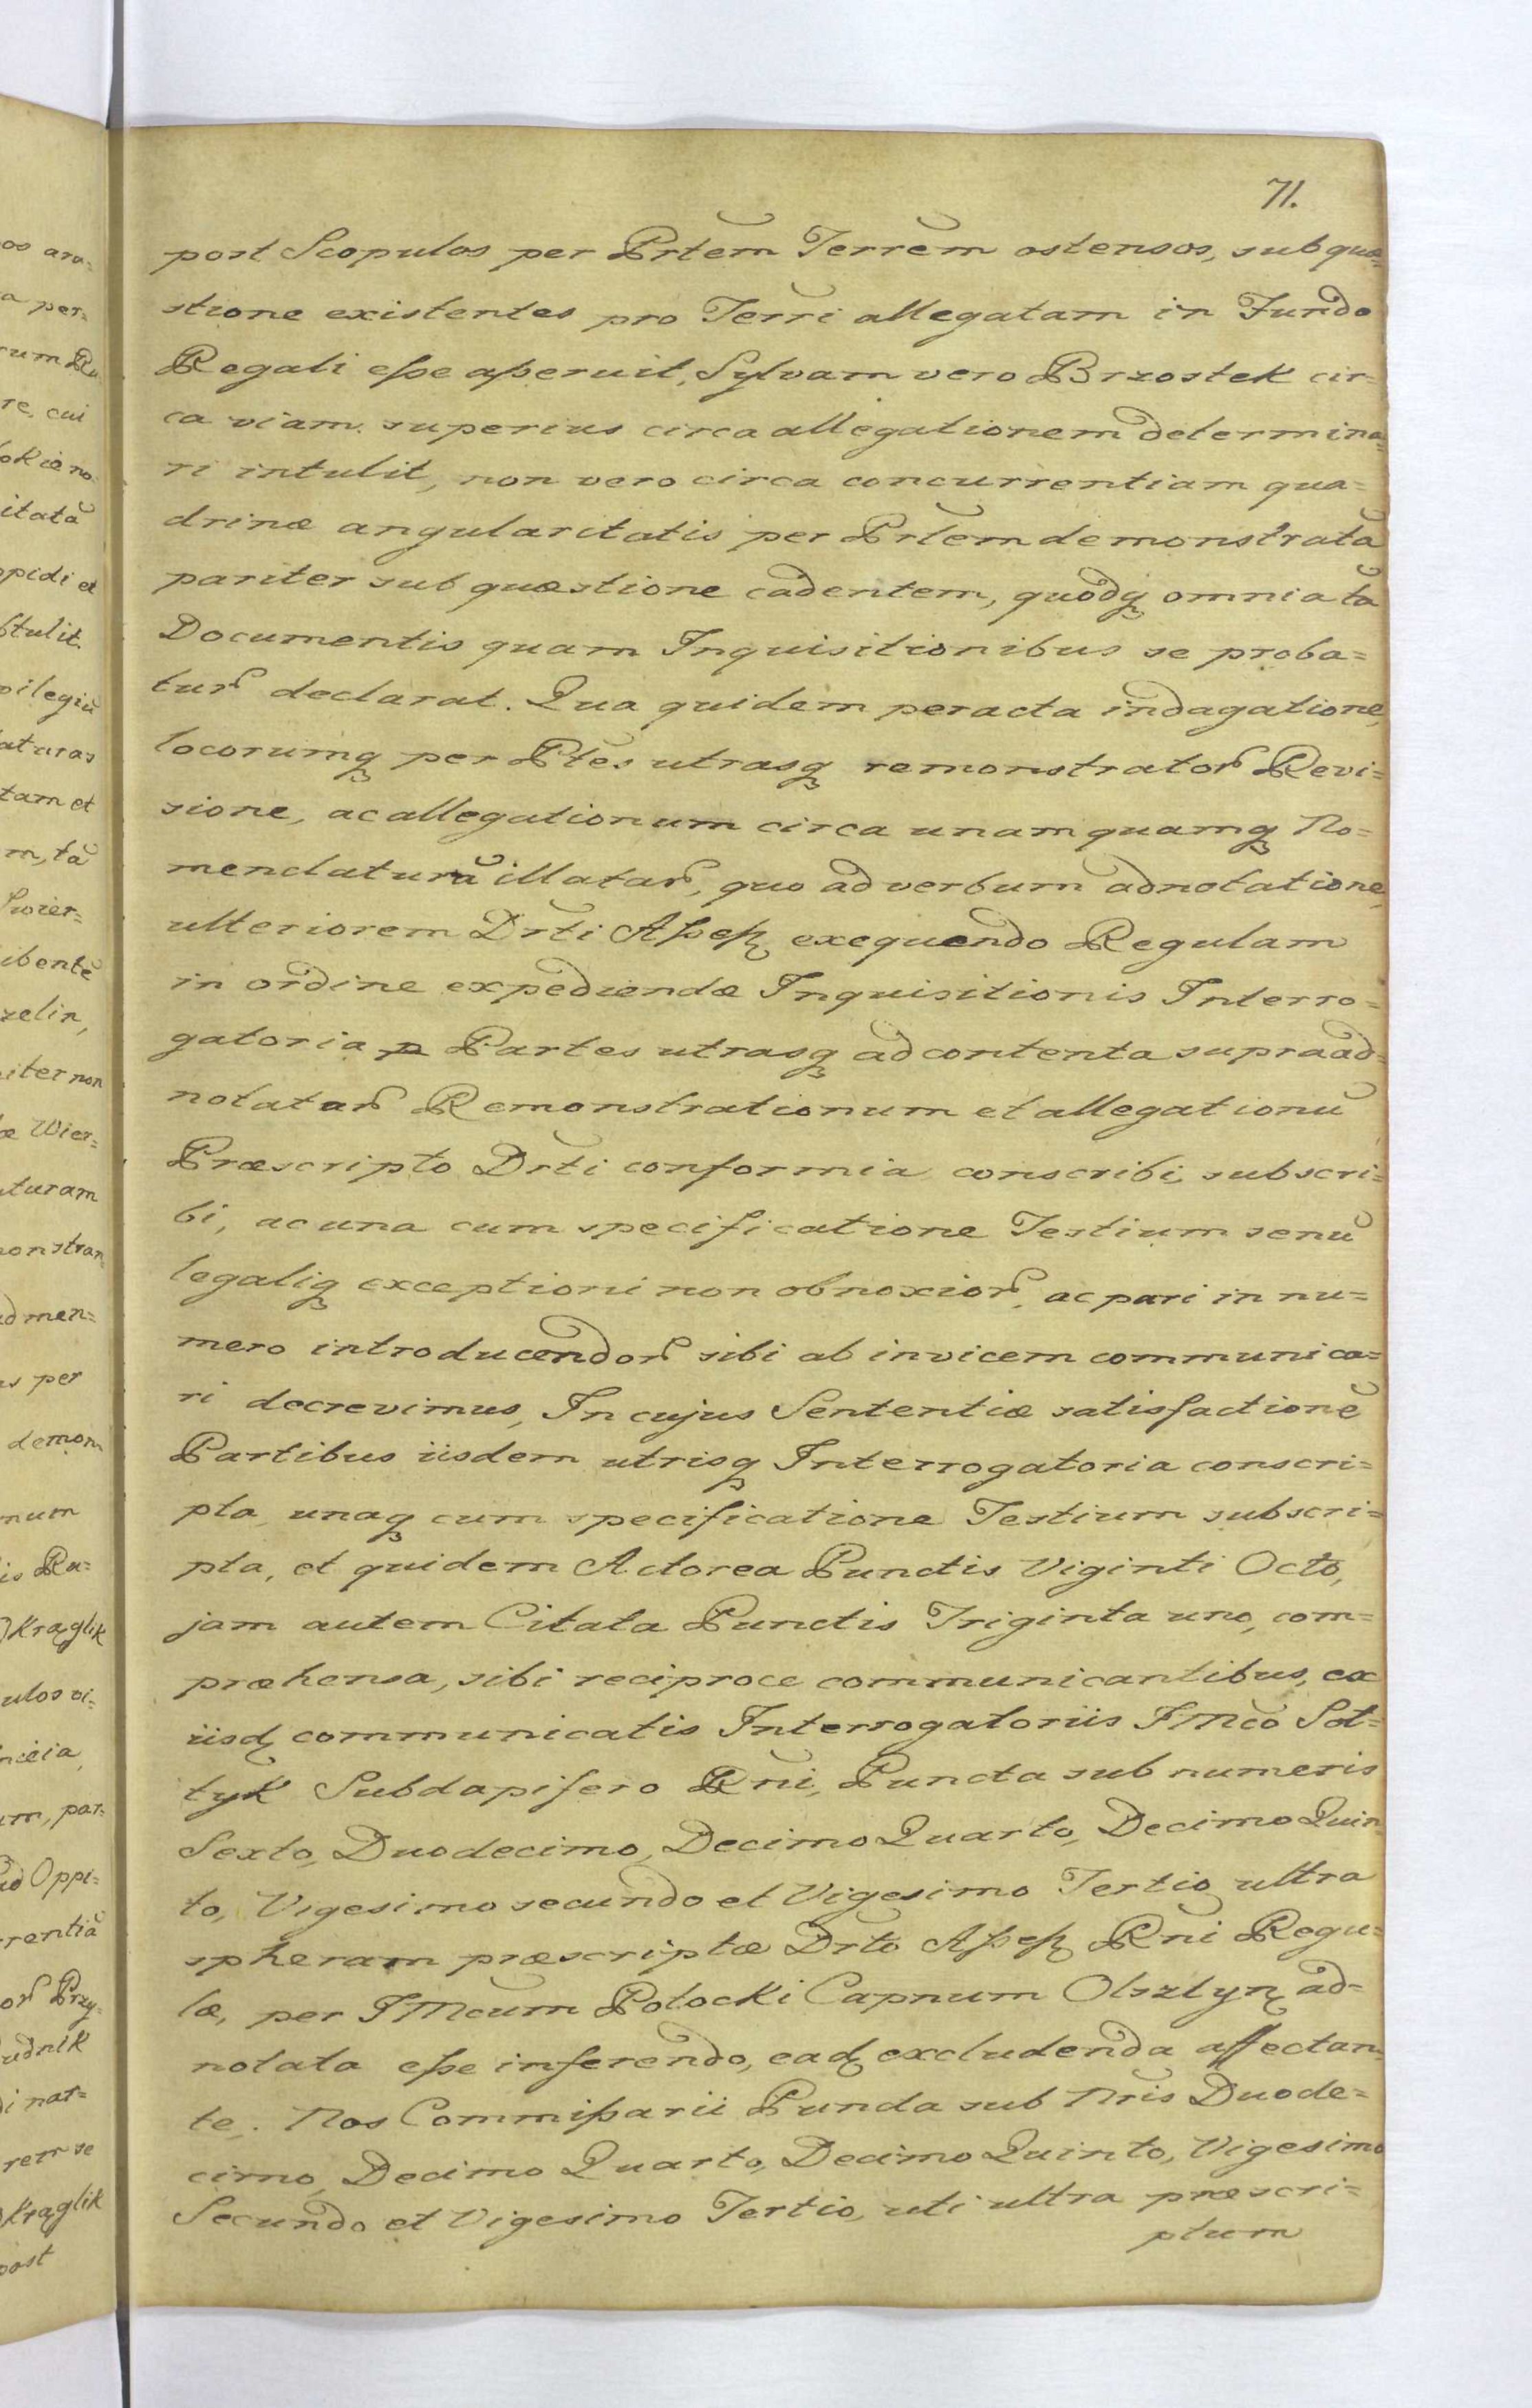 71.
post Scopulos per Prtem Terrem ostensos, sub quæ=
stione existentes pro Terri allegatam in Fundo
Regali eße aßeruit, Sylvam vero Brzostek cir=
ca viam superius circa allegationem determina=
ri intulit, non vero circa concurrentiam qua=
drinæ angularitatis per Prtem demonstratã
pariter sub quæstione cadentem, quodq omnia tã
Documentis quam Inquisitionibus se proba=
tur declarat. Qua quidem peracta indagatione,
locorumq per Ptes utrasq remonstrator Revi=
sione, ac allegationum circa unam quamq No=
menclaturã illatar, quo ad verbum adnotatione,
ulteriorem Drti Aßeß exequendo Regulam
in ordine expediendæ Inquisitionis Interro=
gatoria p Partes utrasq ad contenta supra ad=
notatar Remonstrationum et allegationũ
Præscripto Drti conformia conscribi, subscri=
bi, ac una cum specificatione Testium senũ
legaliq exceptioni non obnoxior, ac pari in nu=
mero introducendor sibi ab invicem communica=
ri decrevimus, In cujus Sententiæ satisfactionẽ
Partibus iisdem utrisq Interrogatoria conscri=
pta, unaq cum specificatione Testium subscri=
pta, et quidem Actorea Punctis Viginti Octo,
jam autem Citata Punctis Triginta uno, com=
præhensa, sibi reciproce communicantibus, ex
iisd communicatis Interrogatoriis IMco Sol=
tyk Subdapifero Rni, Puncta sub numeris
Sexto, Duodecimo, Decimo Quarto, Decimo Quin
to, Vigesimo secundo et Vigesimo Tertio ultra
spheram præscriptæ Drto Aßeß Rni Regu=
læ, per IMcum Potocki Capnum Olsztyn ad=
notata eße inferendo, ead excludenda affectan=
te. Nos Commißarii Puncta sub Nris Duode=
cimo, Decimo Quarto, Decimo Quinto, Vigesimo
Secundo et Vigesimo Tertio, uti ultra præscri=
ptum